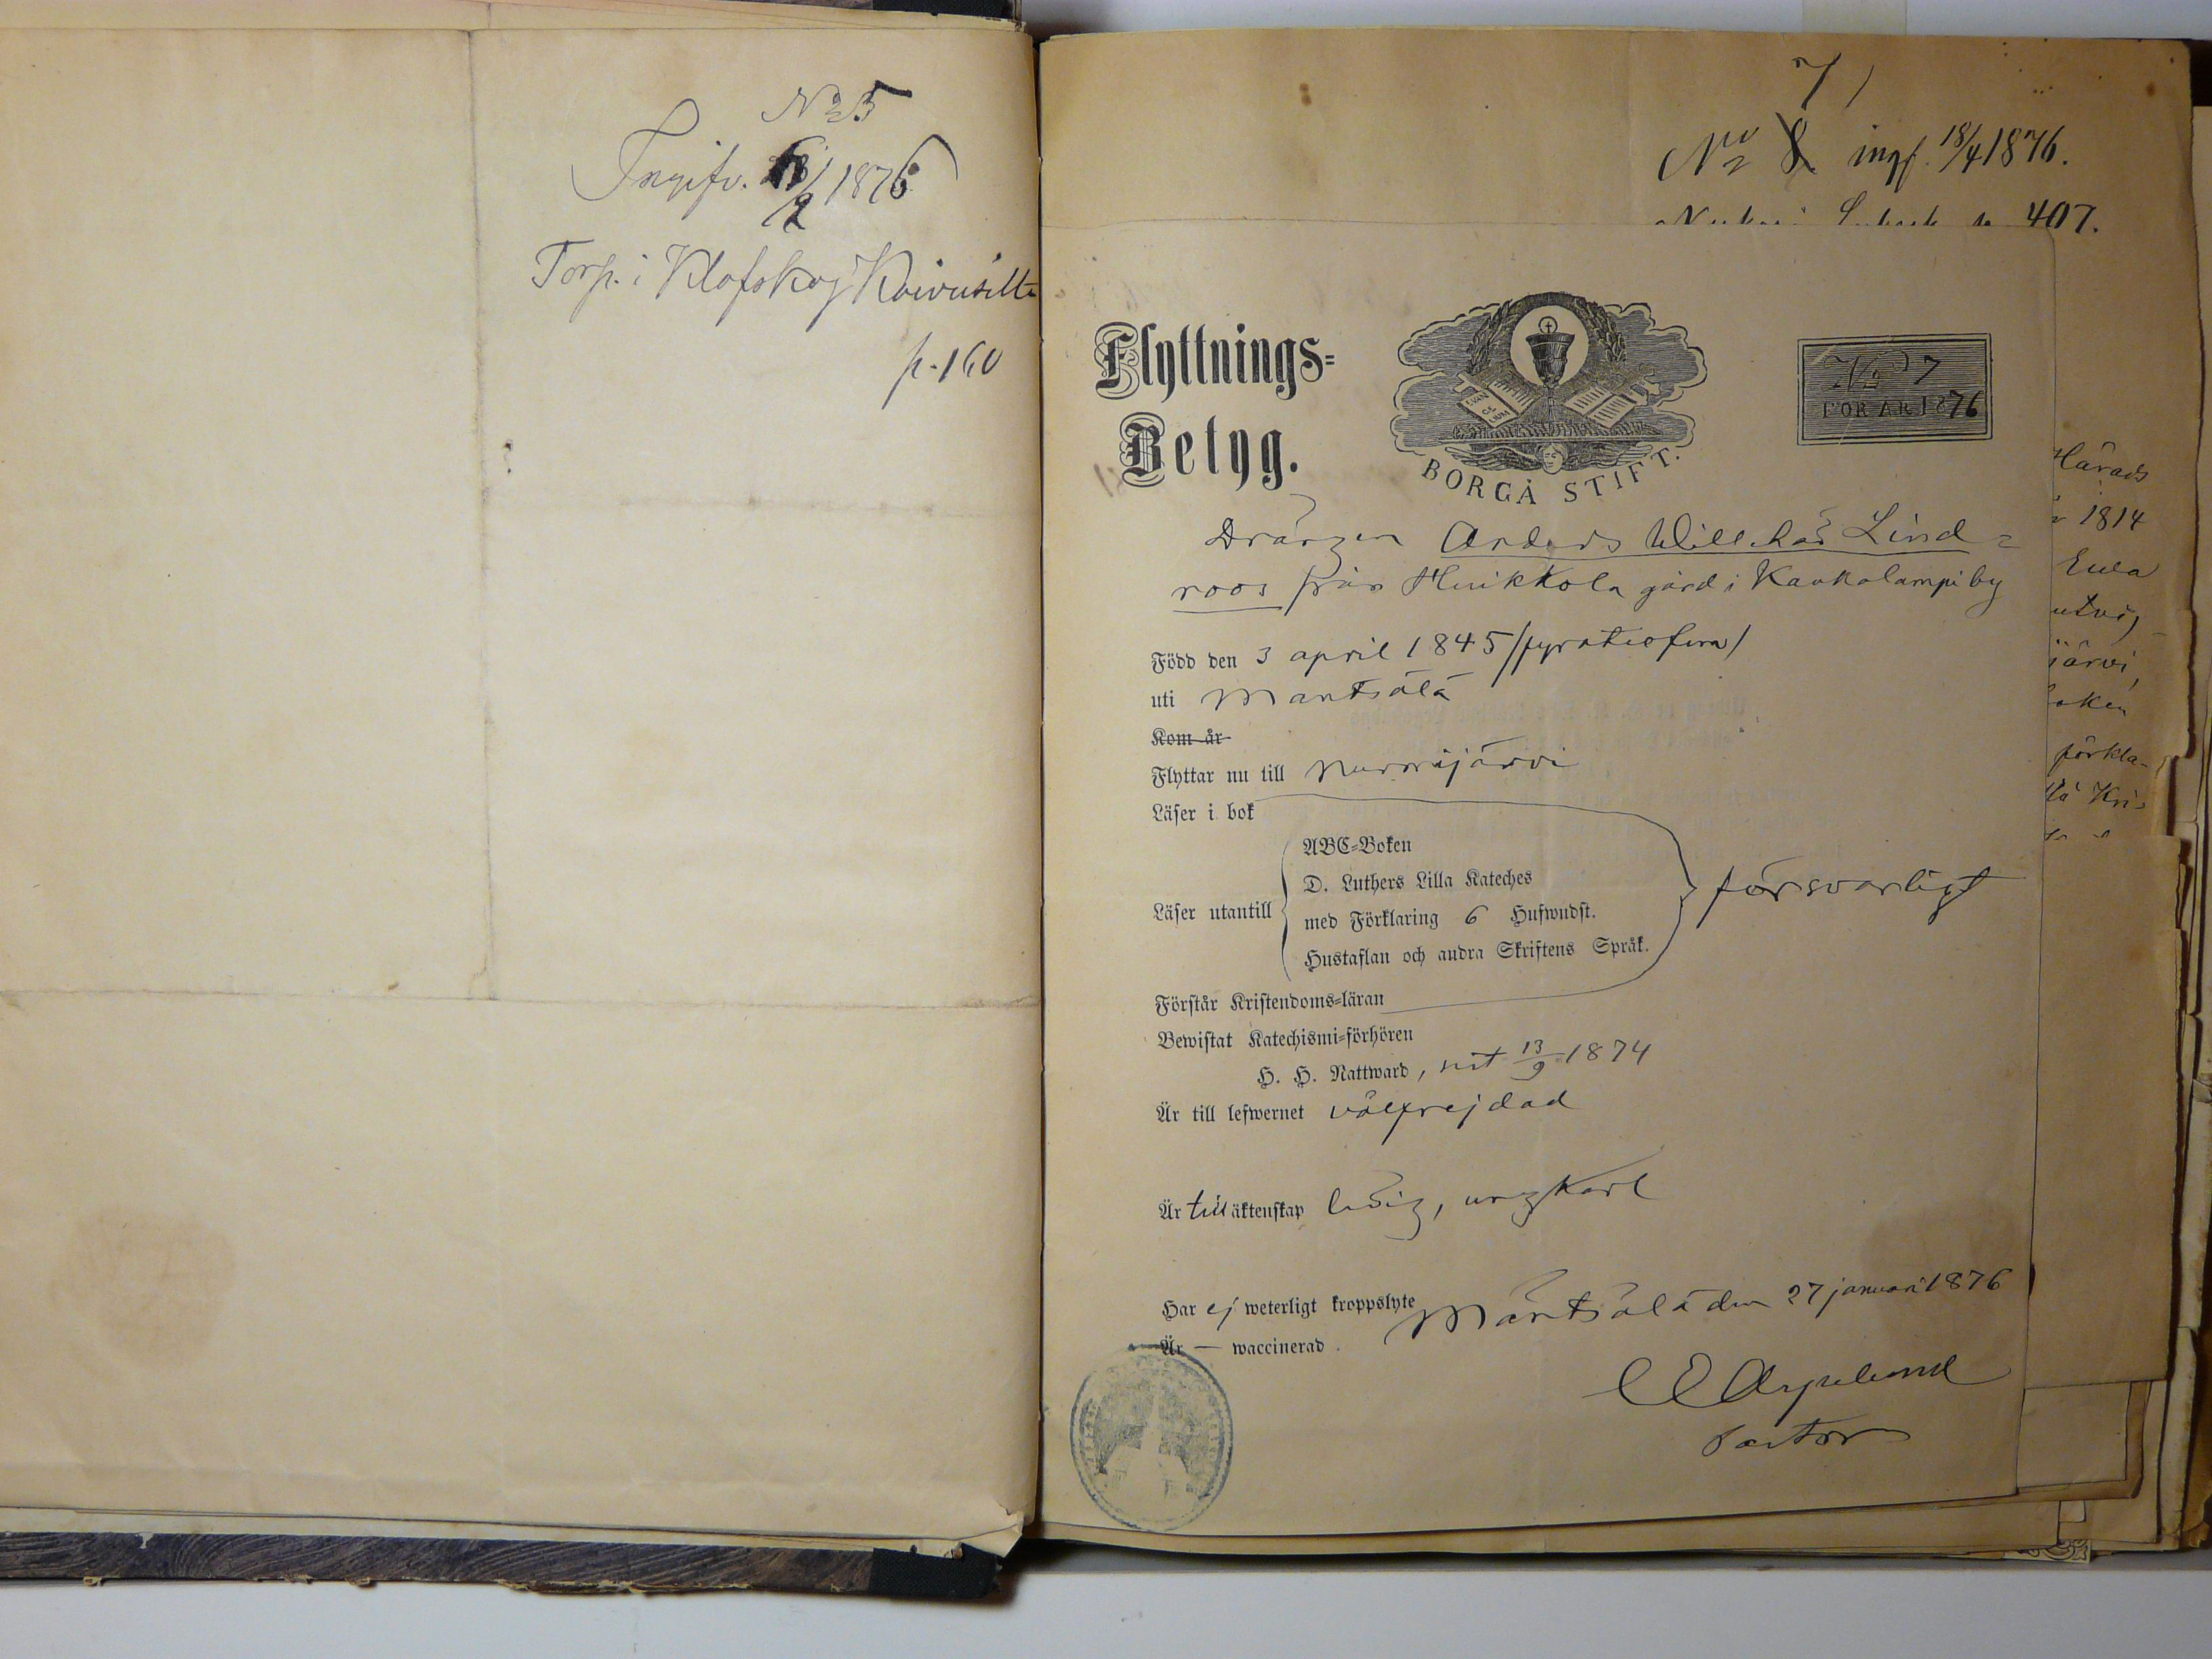 No 5
Ingifv. 6/2 1876
Torp. i Klofskog Koivusilta
p. 160
7)
No 8 ingf. 18/4 1876.
407.
Flyttnings-
Betyg.
EVAN
GE
LIUM
BORGÅ STIFT.
No 7
FÖR ÅR 1876
Drängen Anders Willehad Lind=
roos från Huikkola gård i Kaukalampi by
Född den 3 april 1845 /fyratiofem/
uti Mäntsälä
Kom år
Flyttar nu till Nurmijärvi
Läser i bok
ABC-Boken
D. Luthers Lilla Kateches
Läser utantill
med Förklaring 6 Hufwudst.
Hustaflan och andra Skriftens Språk.
försvarligt
Förstår Kristendoms-läran
Bewistat Katechismi-förhören
H. H. Nattward, sist 13/9 1874
Är till lefwernet välfrejdad
Är till äktenskap ledig, ungkarl
Har ej weterligt kroppslyte
Mäntsälä den 27 januari 1876
Är — waccinerad.
Pastor
Härads
1814
Ewa
järvi,
förkla-